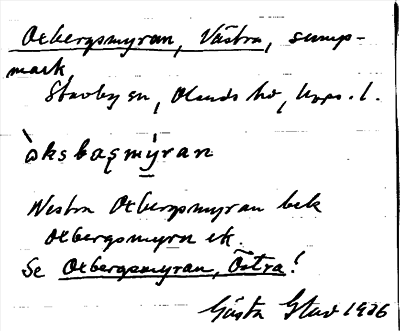 Oxbergsmyran, Västra, sump-
mark,
Stavby sn, Olands hd, Upps. l.
òksbaƈmýran
Westra Oxbergsmyran bek
Oxbergsmyrn ek.
Se Oxbergsmyran, Östra!
Gösta Stav 1936